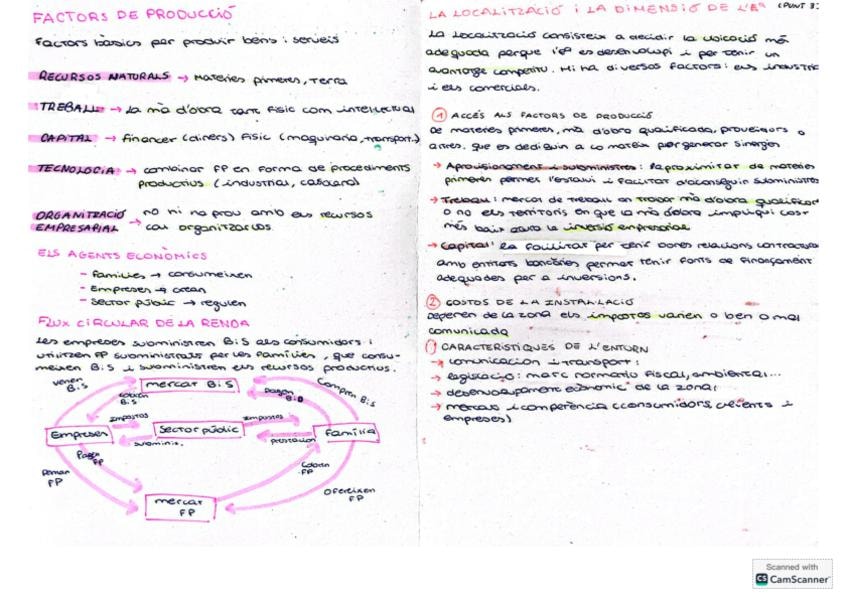 FACTORS DE PRODUCCIÓ
Factors bàsics per produir béns i serveis
RECURSOS NATURALS → Matèries primeres, terra
TREBALL → La mà d'obra tant físic com intel·lectual
CAPITAL → financer (diners) físic (maquinaria, transport.)
TECNOLOGIA → combinar FP en forma de procediments
productius (industrial, casolano)
ORGANITZACIÓ → no hi ha prou amb els recursos
EMPRESARIAL cal organitzar-los.
ELS AGENTS ECONÒMICS
- Famílies → consumeixen
- Empreses → creen
- Sector públic → regulen
FLUX CIRCULAR DE LA RENDA
Les empreses subministren B i S als consumidors i
utilitzen FP subministrats per les famílies, que consu-
meixen B i S i subministren els recursos productius.
venen B i S
mercat B i S
Compren B i S
cobren B i S
paguen B i S
impostos
impostos
Empreses
Sector públic
Família
subminis.
prestacion
Paguen FP
Cobren FP
Deman FP
Ofereixen FP
mercat FP
LA LOCALITZACIÓ I LA DIMENSIÓ DE L'Eª (PUNT 3:
La localització consisteix a decidir la ubicació més
adequada perquè l'eª es desenvolupi i per tenir un
avantatge competitiu. Hi ha diversos factors: els industria
i els comercials.
① ACCÉS ALS FACTORS DE PRODUCCIÓ
De matèries primeres, mà d'obra qualificada, proveïdors o
altres. que es dediquin a co mateix per generar sinergies
→ Aprovisionament i subministres: la proximitat de matèries
primeres permet l'estalvi i facilitat d'aconseguir subministres
→ Treball: mercat de treball on trobar mà d'obra qualificad
o no els territoris en què la mà d'obra impliqui cost
més baix para la inversió empresarial
→ Capital: la facilitat per tenir bones relacions contractua
amb entitats bancàries permet tenir fonts de finançament
adequades per a inversions.
② COSTOS DE LA INSTAL·LACIÓ
Depenen de la zona els impostos varien o ben o mal
comunicada
① CARACTERÍSTIQUES DE L'ENTORN
→ comunicacion i transport:
→ legislació: marc normatiu fiscal, ambiental...
→ desenvolupament econòmic de la zona:
→ mercat i competència (consumidors, clients i
empreses)
Scanned with
CS CamScanner